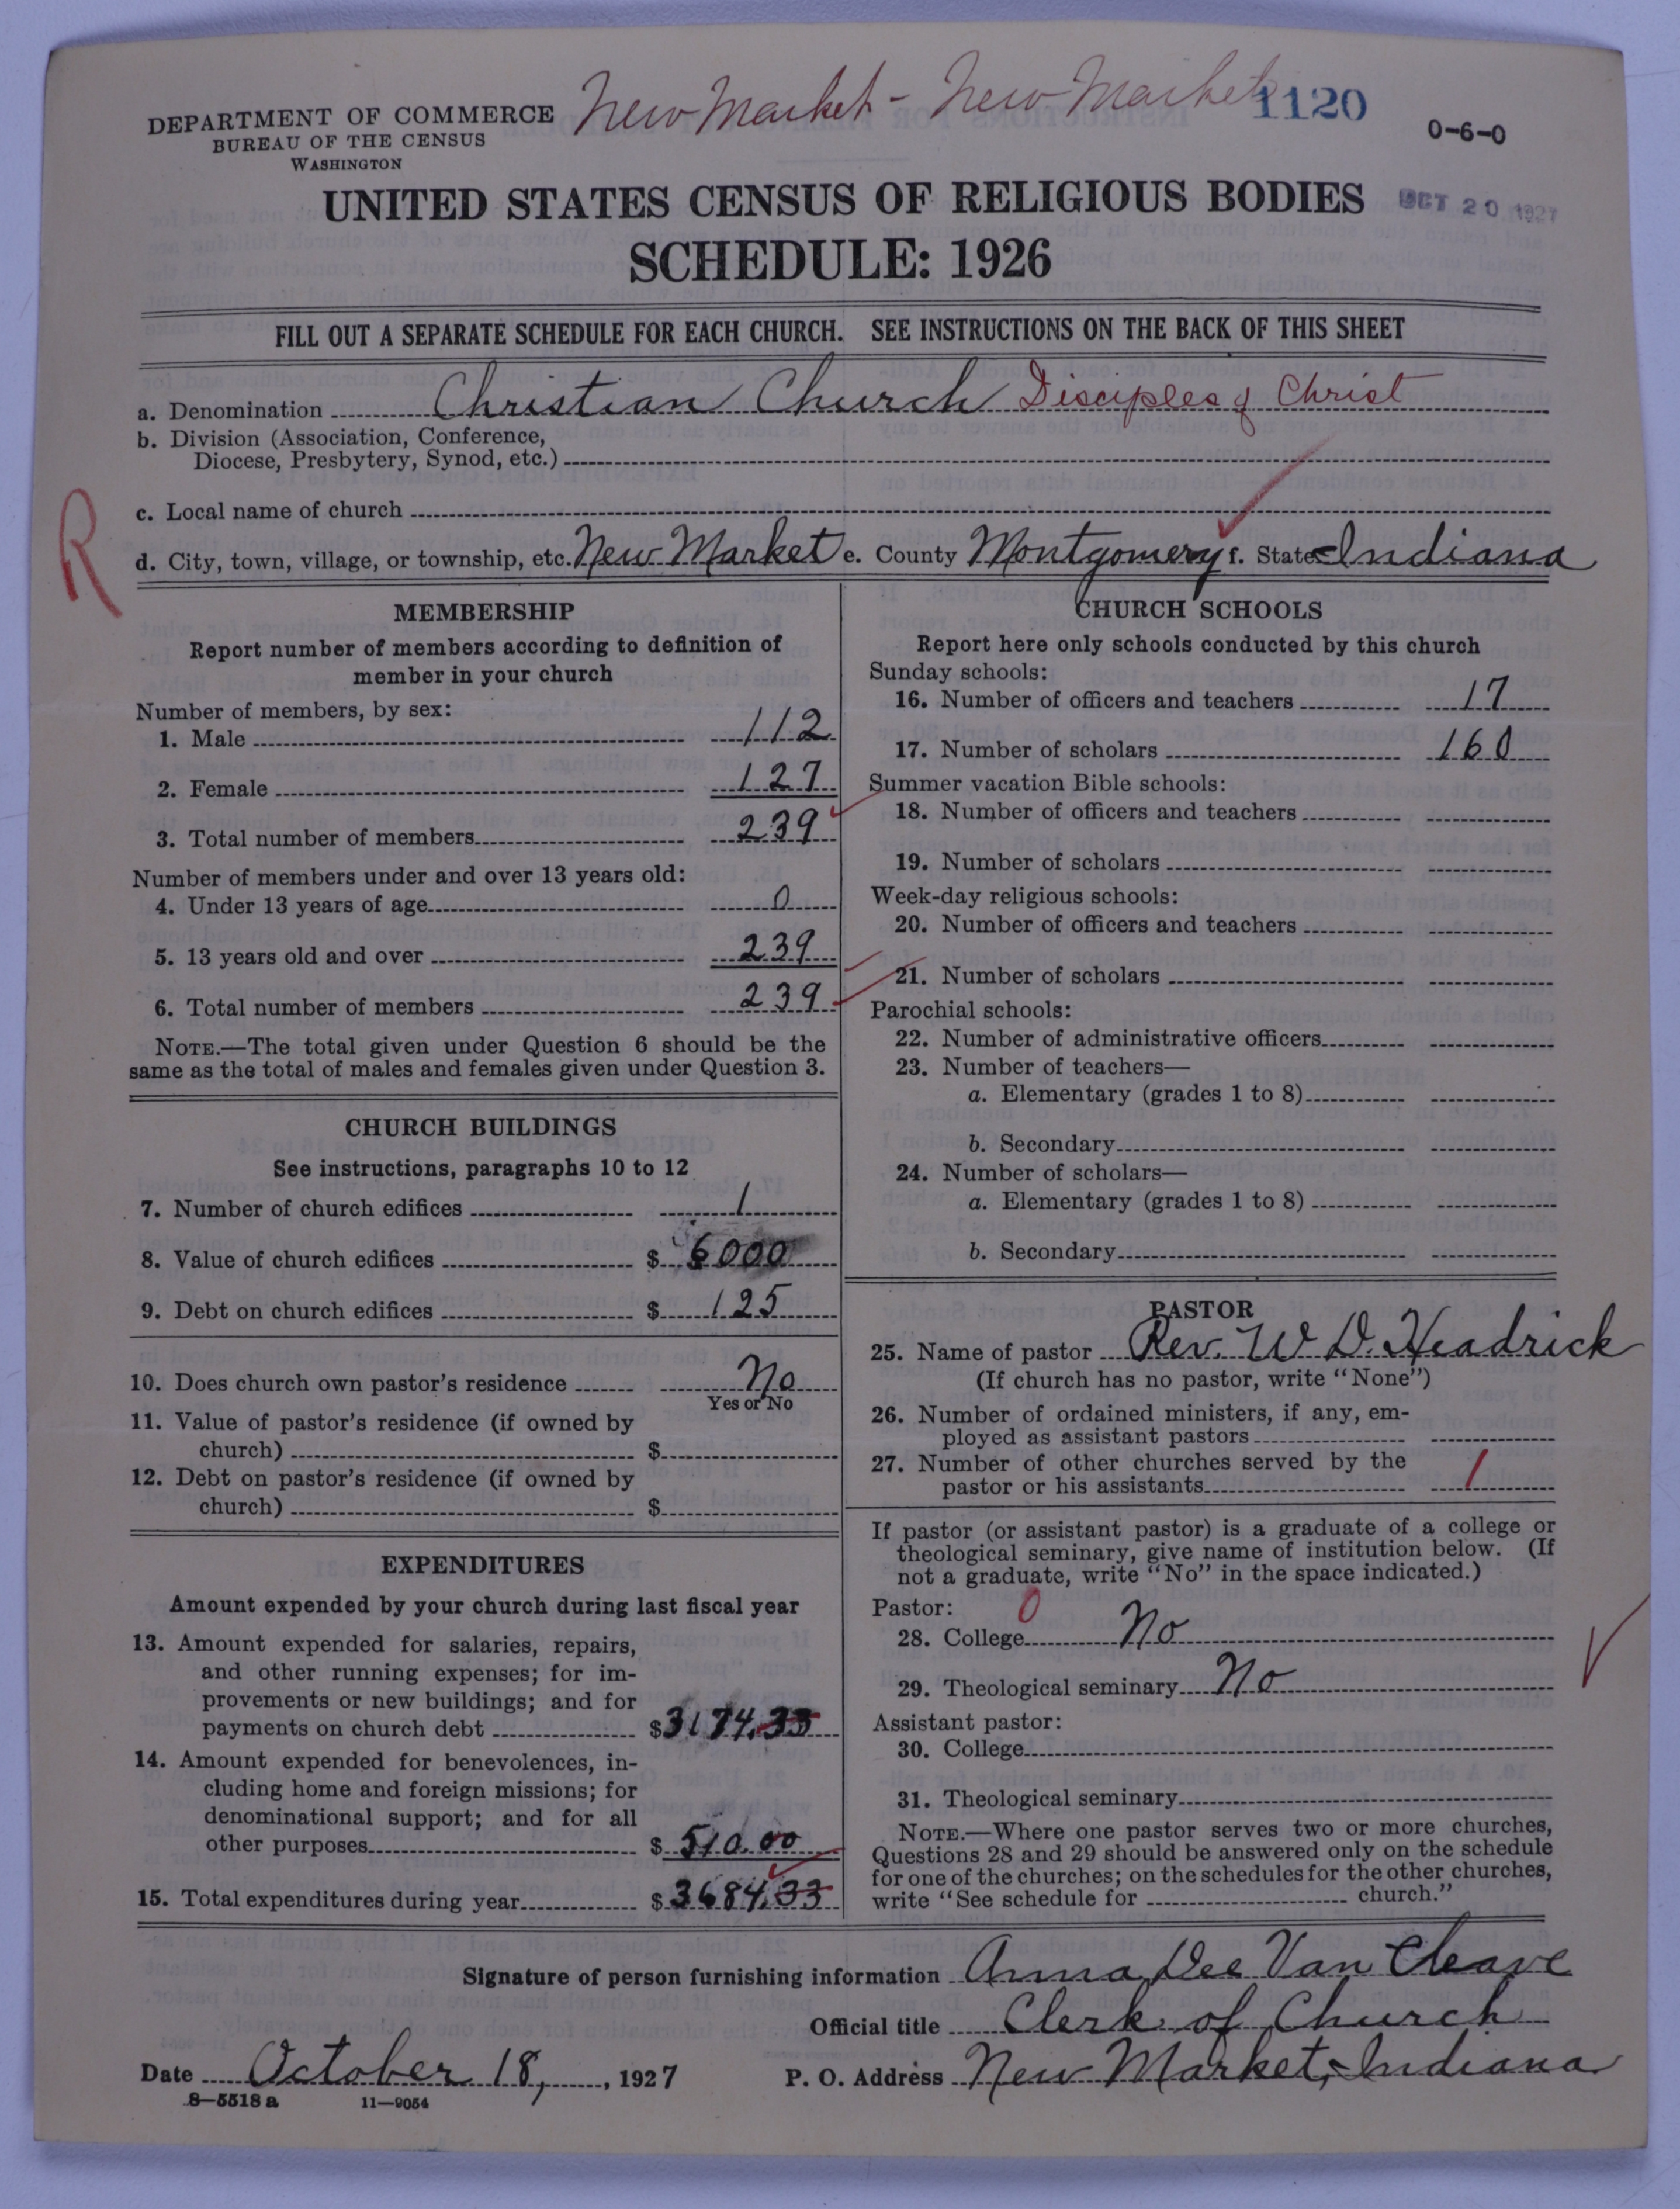 New Market - New Market 1120
DEPARTMENT OF COMMERCE
BUREAU OF THE CENSUS
WASHINGTON
0-6-0
UNITED STATES CENSUS OF RELIGIOUS BODIES
OCT 20 1927
SCHEDULE: 1926
FILL OUT A SEPARATE SCHEDULE FOR EACH CHURCH. SEE INSTRUCTIONS ON THE BACK OF THIS SHEET
a. Denomination Christian Church Disciples of Christ
b. Division (Association, Conference,
Diocese, Presbytery, Synod, etc.)
c. Local name of church
R
d. City, town, village, or township, etc. New Market e. County Montgomery f. State Indiana
MEMBERSHIP
Report number of members according to definition of
member in your church
Number of members, by sex:
1. Male 112
2. Female 127
3. Total number of members 239
Number of members under and over 13 years old:
4. Under 13 years of age 0
5. 13 years old and over 239
6. Total number of members 239
NOTE.—The total given under Question 6 should be the
same as the total of males and females given under Question 3.
CHURCH BUILDINGS
See instructions, paragraphs 10 to 12
7. Number of church edifices 1
8. Value of church edifices $ 6000
9. Debt on church edifices $ 125
10. Does church own pastor's residence No
Yes or No
11. Value of pastor's residence (if owned by
church) $
12. Debt on pastor's residence (if owned by
church) $
EXPENDITURES
Amount expended by your church during last fiscal year
13. Amount expended for salaries, repairs,
and other running expenses; for im-
provements or new buildings; and for
payments on church debt $3174.33
14. Amount expended for benevolences, in-
cluding home and foreign missions; for
denominational support; and for all
other purposes $ 510.00
15. Total expenditures during year $ 3684.33
CHURCH SCHOOLS
Report here only schools conducted by this church
Sunday schools:
16. Number of officers and teachers 17
17. Number of scholars 160
Summer vacation Bible schools:
18. Number of officers and teachers
19. Number of scholars
Week-day religious schools:
20. Number of officers and teachers
21. Number of scholars
Parochial schools:
22. Number of administrative officers
23. Number of teachers—
a. Elementary (grades 1 to 8)
b. Secondary
24. Number of scholars—
a. Elementary (grades 1 to 8)
b. Secondary
PASTOR
25. Name of pastor Rev. W. D. Headrick
(If church has no pastor, write "None")
26. Number of ordained ministers, if any, em-
ployed as assistant pastors
27. Number of other churches served by the
pastor or his assistants 1
If pastor (or assistant pastor) is a graduate of a college or
theological seminary, give name of institution below. (If
not a graduate, write "No" in the space indicated.)
Pastor: 0
28. College No
29. Theological seminary No
Assistant pastor:
30. College
31. Theological seminary
NOTE.—Where one pastor serves two or more churches,
Questions 28 and 29 should be answered only on the schedule
for one of the churches; on the schedules for the other churches,
write "See schedule for church."
Signature of person furnishing information Anna Dee Van Cleave
Official title Clerk of Church
Date October 18, , 1927 P. O. Address New Market, Indiana
8—5518 a 11—9054